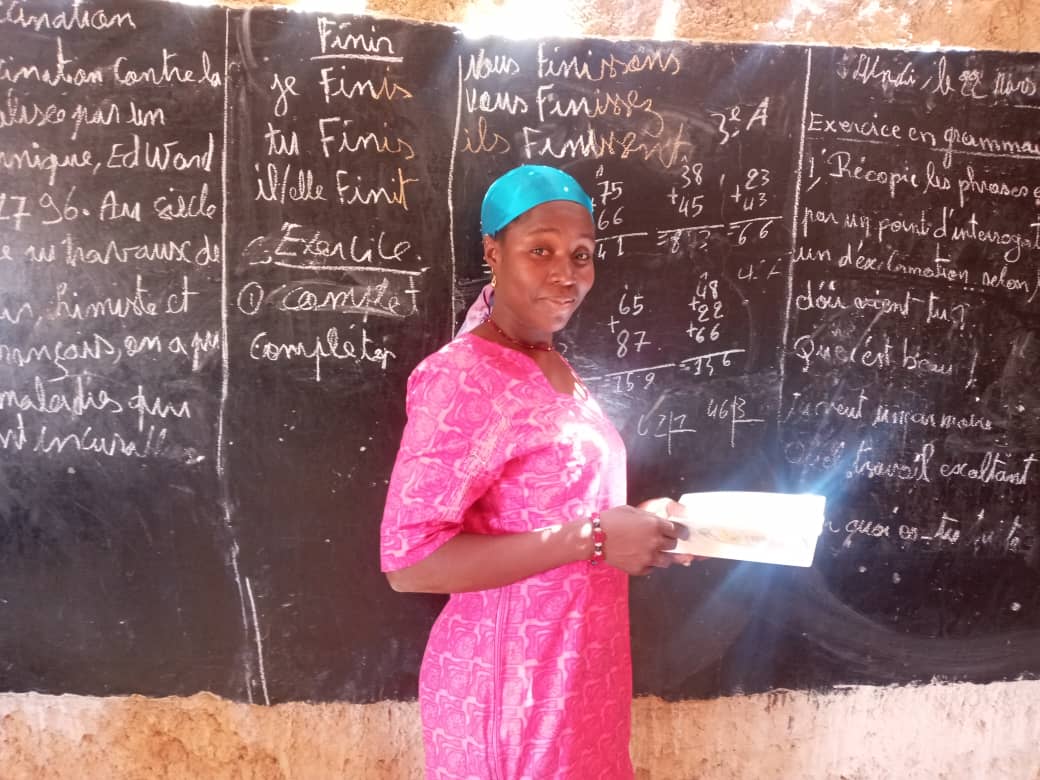 cination
cination Contre la
alisée par un
nnique, EdWard
1796. Au siècle
travaux de
himiste et
rançais, on a pu
maladies qui
nt incurables
Finir
je Finis
tu Finis
il/elle Finit
Exercice.
① complet
Compléter
Nous Finissons
Vous Finissez
ils Finissent
3e A
75
+66
38
+45
23
+43
=66
65
+
87
48
+22
+66
46|3
Lundi, le 22 Mars
Exercice en grammai
1. Récopie les phrases
par un point d'interrogat
un d'exclamation selon
d'où vient tu?
Que c'est beau!
Quel travail exaltant
quoi es-tu